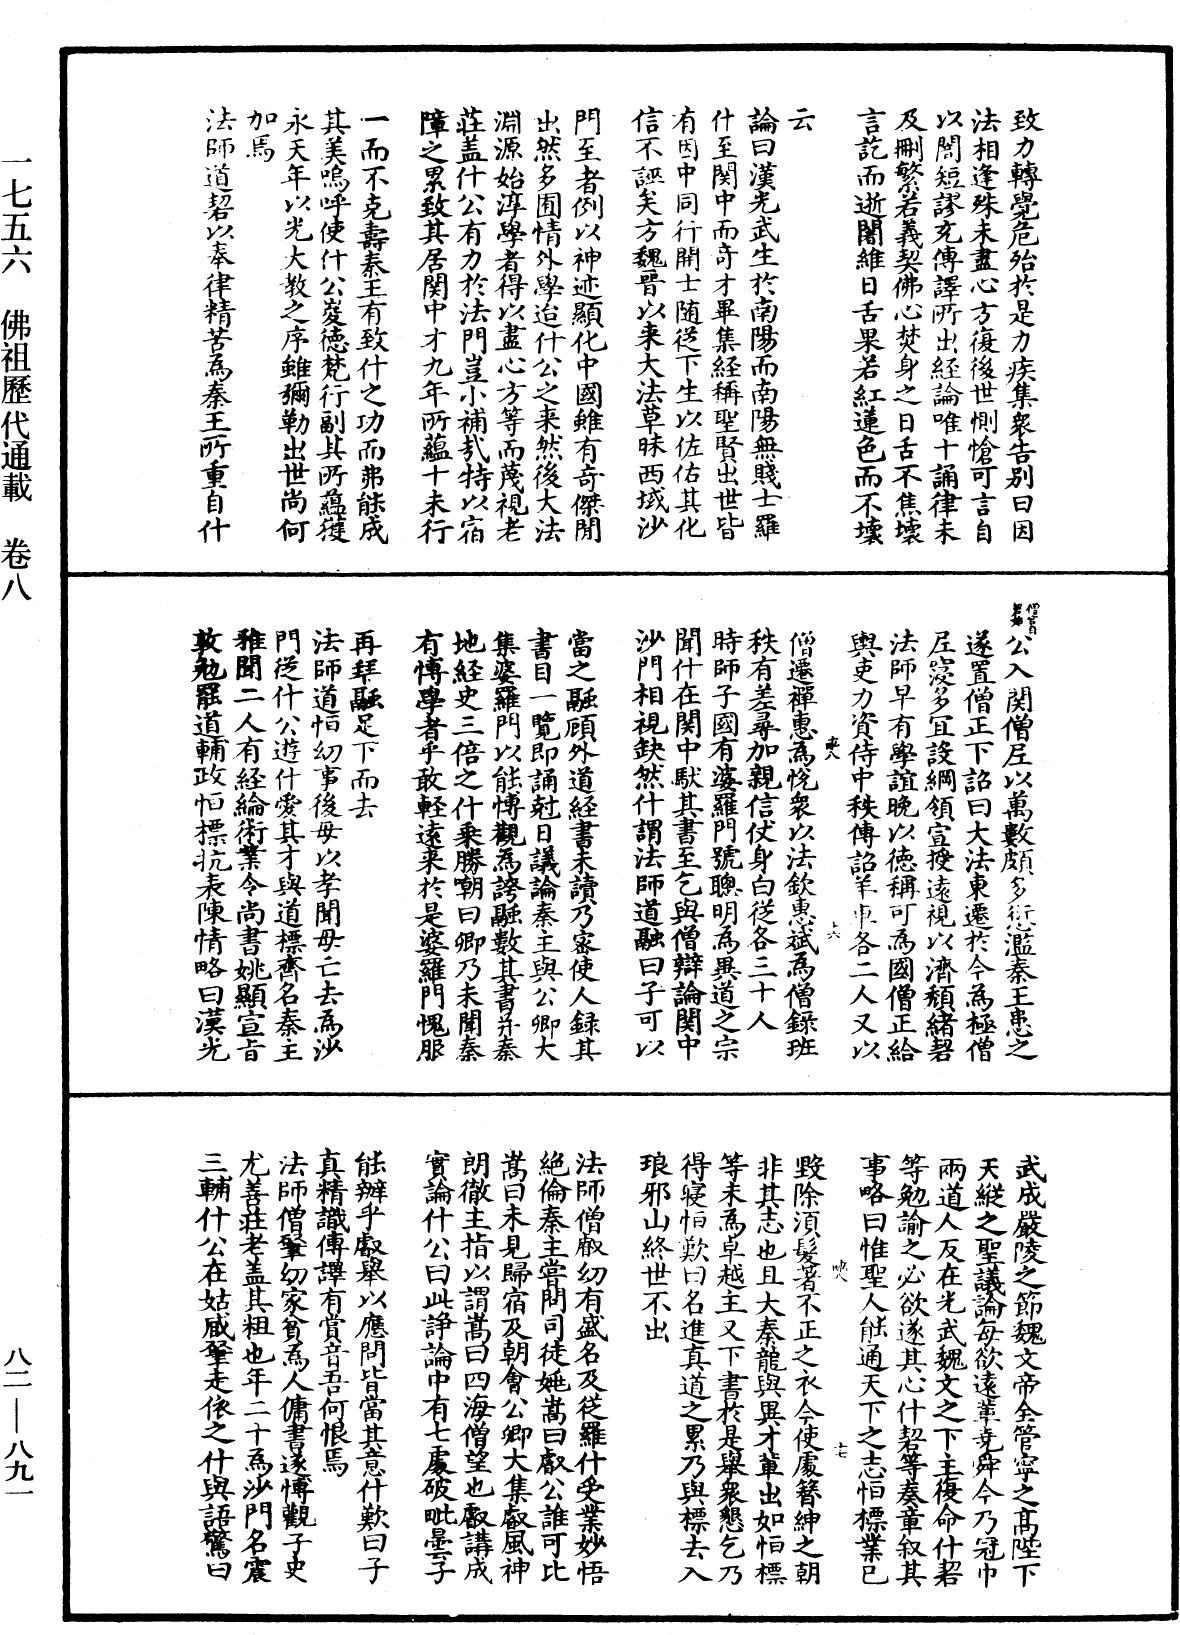 致力轉覺危殆於是力疾集衆告別曰因
法相逢殊未盡心方復後世惻愴可言自
以闇短謬充傳譯所出經論唯十誦律未
及刪繁若義契佛心焚身之日舌不焦壞
言訖而逝闍維日舌果若紅蓮色而不壞
云
論曰漢光武生於南陽而南陽無賤士羅
什至関中而奇才畢集経稱聖賢出世皆
有因中同行開士随從下生以佐佑其化
信不誣矣方魏晉以来大法草昧西域沙
門至者例以神迹顯化中國雖有奇傑間
出然多囿情外學迨什公之来然後大法
淵源始淳學者得以盡心方等而蔑視老
莊盖什公有力於法門豈小補㢤特以宿
障之累致其居関中才九年所蘊十未行
一而不克壽秦王有致什之功而弗能成
其美嗚呼使什公㕙德梵行副其所蘊獲
永天年以光大教之序雖彌勒出世尚何
加焉
法師道䂮以奉律精苦為秦王所重自什
公入関僧尼以萬數頗多愆濫秦王患之
遂置僧正下詔曰大法東遷於今為極僧
尼寖多冝設綱領宣授遠視以濟頽緒䂮
法師早有學誼晚以德稱可為國僧正給
輿吏力資侍中秩傳詔羊車各二人又以
僧遷禪惠為恱衆以法欽惠斌為僧録班
秩有差尋加親信仗身白從各三十人
時師子國有婆羅門號聰明為異道之宗
聞什在関中馱其書至乞與僧辯論関中
沙門相視缺然什謂法師道融曰子可以
當之融顧外道經書未讀乃密使人録其
書目一覽即誦尅日議論秦主與公卿大
集婆羅門以能博觀為誇融數其書并秦
地経史三倍之什乗勝嘲曰卿乃未聞秦
有博學者乎敢軽遠来於是婆羅門愧服
再拜融足下而去
法師道恒幼事後母以孝聞母亡去為沙
門從什公遊什愛其才與道標齊名秦主
雅聞二人有経綸術業令尚書姚顯宣旨
敦勉罷道輔政恒標抗表陳情略曰漢光
武成嚴陵之節魏文帝全管寧之髙陛下
天縱之聖議論每欲遠軰堯舜今乃冠巾
兩道人反在光武魏文之下主復命什䂮
等勉諭之必欲遂其心什䂮等奏章叙其
事略曰惟聖人能通天下之志恒標業已
毀除湏髮著不正之衣今使處簪紳之朝
非其志也且大秦龍興異才軰出如恒標
等未為卓越主又下書於是舉衆懇乞乃
得寝恒歎曰名進真道之累乃與標去入
琅邪山終世不出
法師僧叡幼有盛名及從羅什受業妙悟
絶倫秦主嘗問司徒姚嵩曰叡公誰可比
嵩曰未見歸宿及朝會公卿大集叡風神
朗徹主指以謂嵩曰四海僧望也叡講成
實論什公曰此諍論中有七處破毗曇子
能辨乎叡舉以應問皆當其意什歎曰子
真精識傳譯有賞音吾何恨焉
法師僧肇幼家貧為人傭書遂博觀子史
尤善莊老盖其粗也年二十為沙門名震
三輔什公在姑臧肇走依之什與語驚曰
一七五六　佛祖歷代通載　卷八
八二—八九一